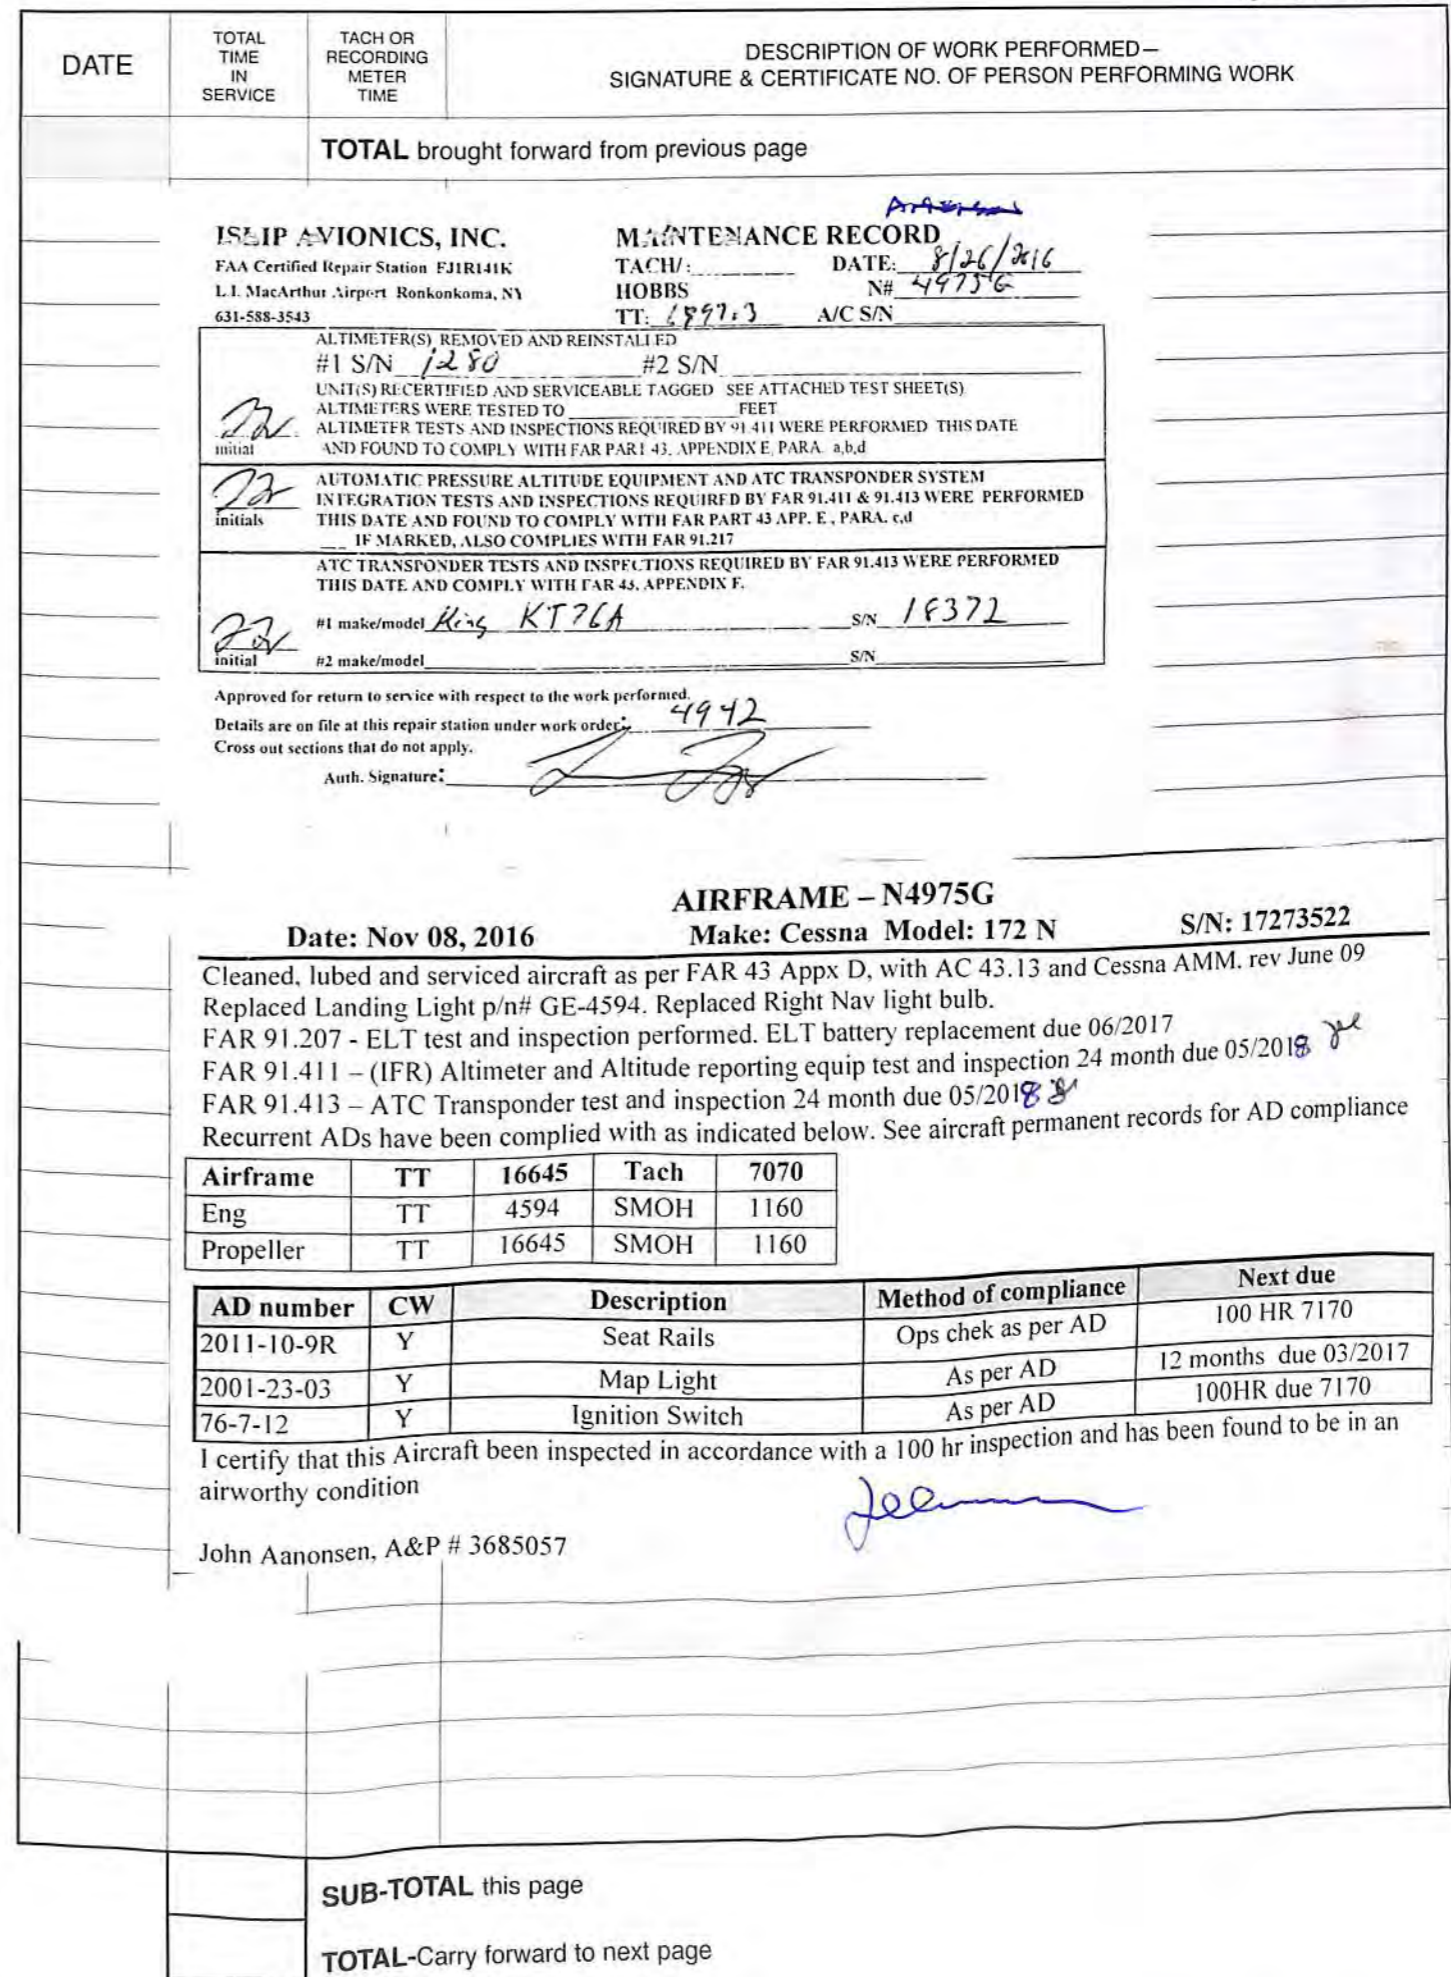 DATE
TOTAL TIME IN SERVICE
TACH OR RECORDING METER TIME
DESCRIPTION OF WORK PERFORMED—
SIGNATURE & CERTIFICATE NO. OF PERSON PERFORMING WORK
TOTAL brought forward from previous page
ISLIP AVIONICS, INC.
FAA Certified Repair Station FJ1R141K
L.I. MacArthur Airport Ronkonkoma, NY
631-588-3543
MAINTENANCE RECORD
TACH/: DATE: 8/26/2016
HOBBS N# 4975G
TT: 1897.3 A/C S/N
ALTIMETER(S) REMOVED AND REINSTALLED
#1 S/N 1280 #2 S/N
UNIT(S) RECERTIFIED AND SERVICEABLE TAGGED SEE ATTACHED TEST SHEET(S)
ALTIMETERS WERE TESTED TO FEET
ALTIMETER TESTS AND INSPECTIONS REQUIRED BY 91.411 WERE PERFORMED THIS DATE
initial AND FOUND TO COMPLY WITH FAR PART 43, APPENDIX E, PARA. a,b,d
AUTOMATIC PRESSURE ALTITUDE EQUIPMENT AND ATC TRANSPONDER SYSTEM
INTEGRATION TESTS AND INSPECTIONS REQUIRED BY FAR 91.411 & 91.413 WERE PERFORMED
initials THIS DATE AND FOUND TO COMPLY WITH FAR PART 43 APP. E , PARA. c,d
___ IF MARKED, ALSO COMPLIES WITH FAR 91.217
ATC TRANSPONDER TESTS AND INSPECTIONS REQUIRED BY FAR 91.413 WERE PERFORMED
THIS DATE AND COMPLY WITH FAR 43, APPENDIX F.
#1 make/model King KT76A S/N 18372
initial #2 make/model S/N
Approved for return to service with respect to the work performed.
Details are on file at this repair station under work order: 4942
Cross out sections that do not apply.
Auth. Signature:
AIRFRAME – N4975G
Date: Nov 08, 2016 Make: Cessna Model: 172 N S/N: 17273522
Cleaned, lubed and serviced aircraft as per FAR 43 Appx D, with AC 43.13 and Cessna AMM. rev June 09
Replaced Landing Light p/n# GE-4594. Replaced Right Nav light bulb.
FAR 91.207 - ELT test and inspection performed. ELT battery replacement due 06/2017
FAR 91.411 – (IFR) Altimeter and Altitude reporting equip test and inspection 24 month due 05/2018
FAR 91.413 – ATC Transponder test and inspection 24 month due 05/2018
Recurrent ADs have been complied with as indicated below. See aircraft permanent records for AD compliance
Airframe TT 16645 Tach 7070
Eng TT 4594 SMOH 1160
Propeller TT 16645 SMOH 1160
AD number CW Description Method of compliance Next due
2011-10-9R Y Seat Rails Ops chek as per AD 100 HR 7170
2001-23-03 Y Map Light As per AD 12 months due 03/2017
76-7-12 Y Ignition Switch As per AD 100HR due 7170
I certify that this Aircraft been inspected in accordance with a 100 hr inspection and has been found to be in an
airworthy condition
John Aanonsen, A&P # 3685057
SUB-TOTAL this page
TOTAL-Carry forward to next page